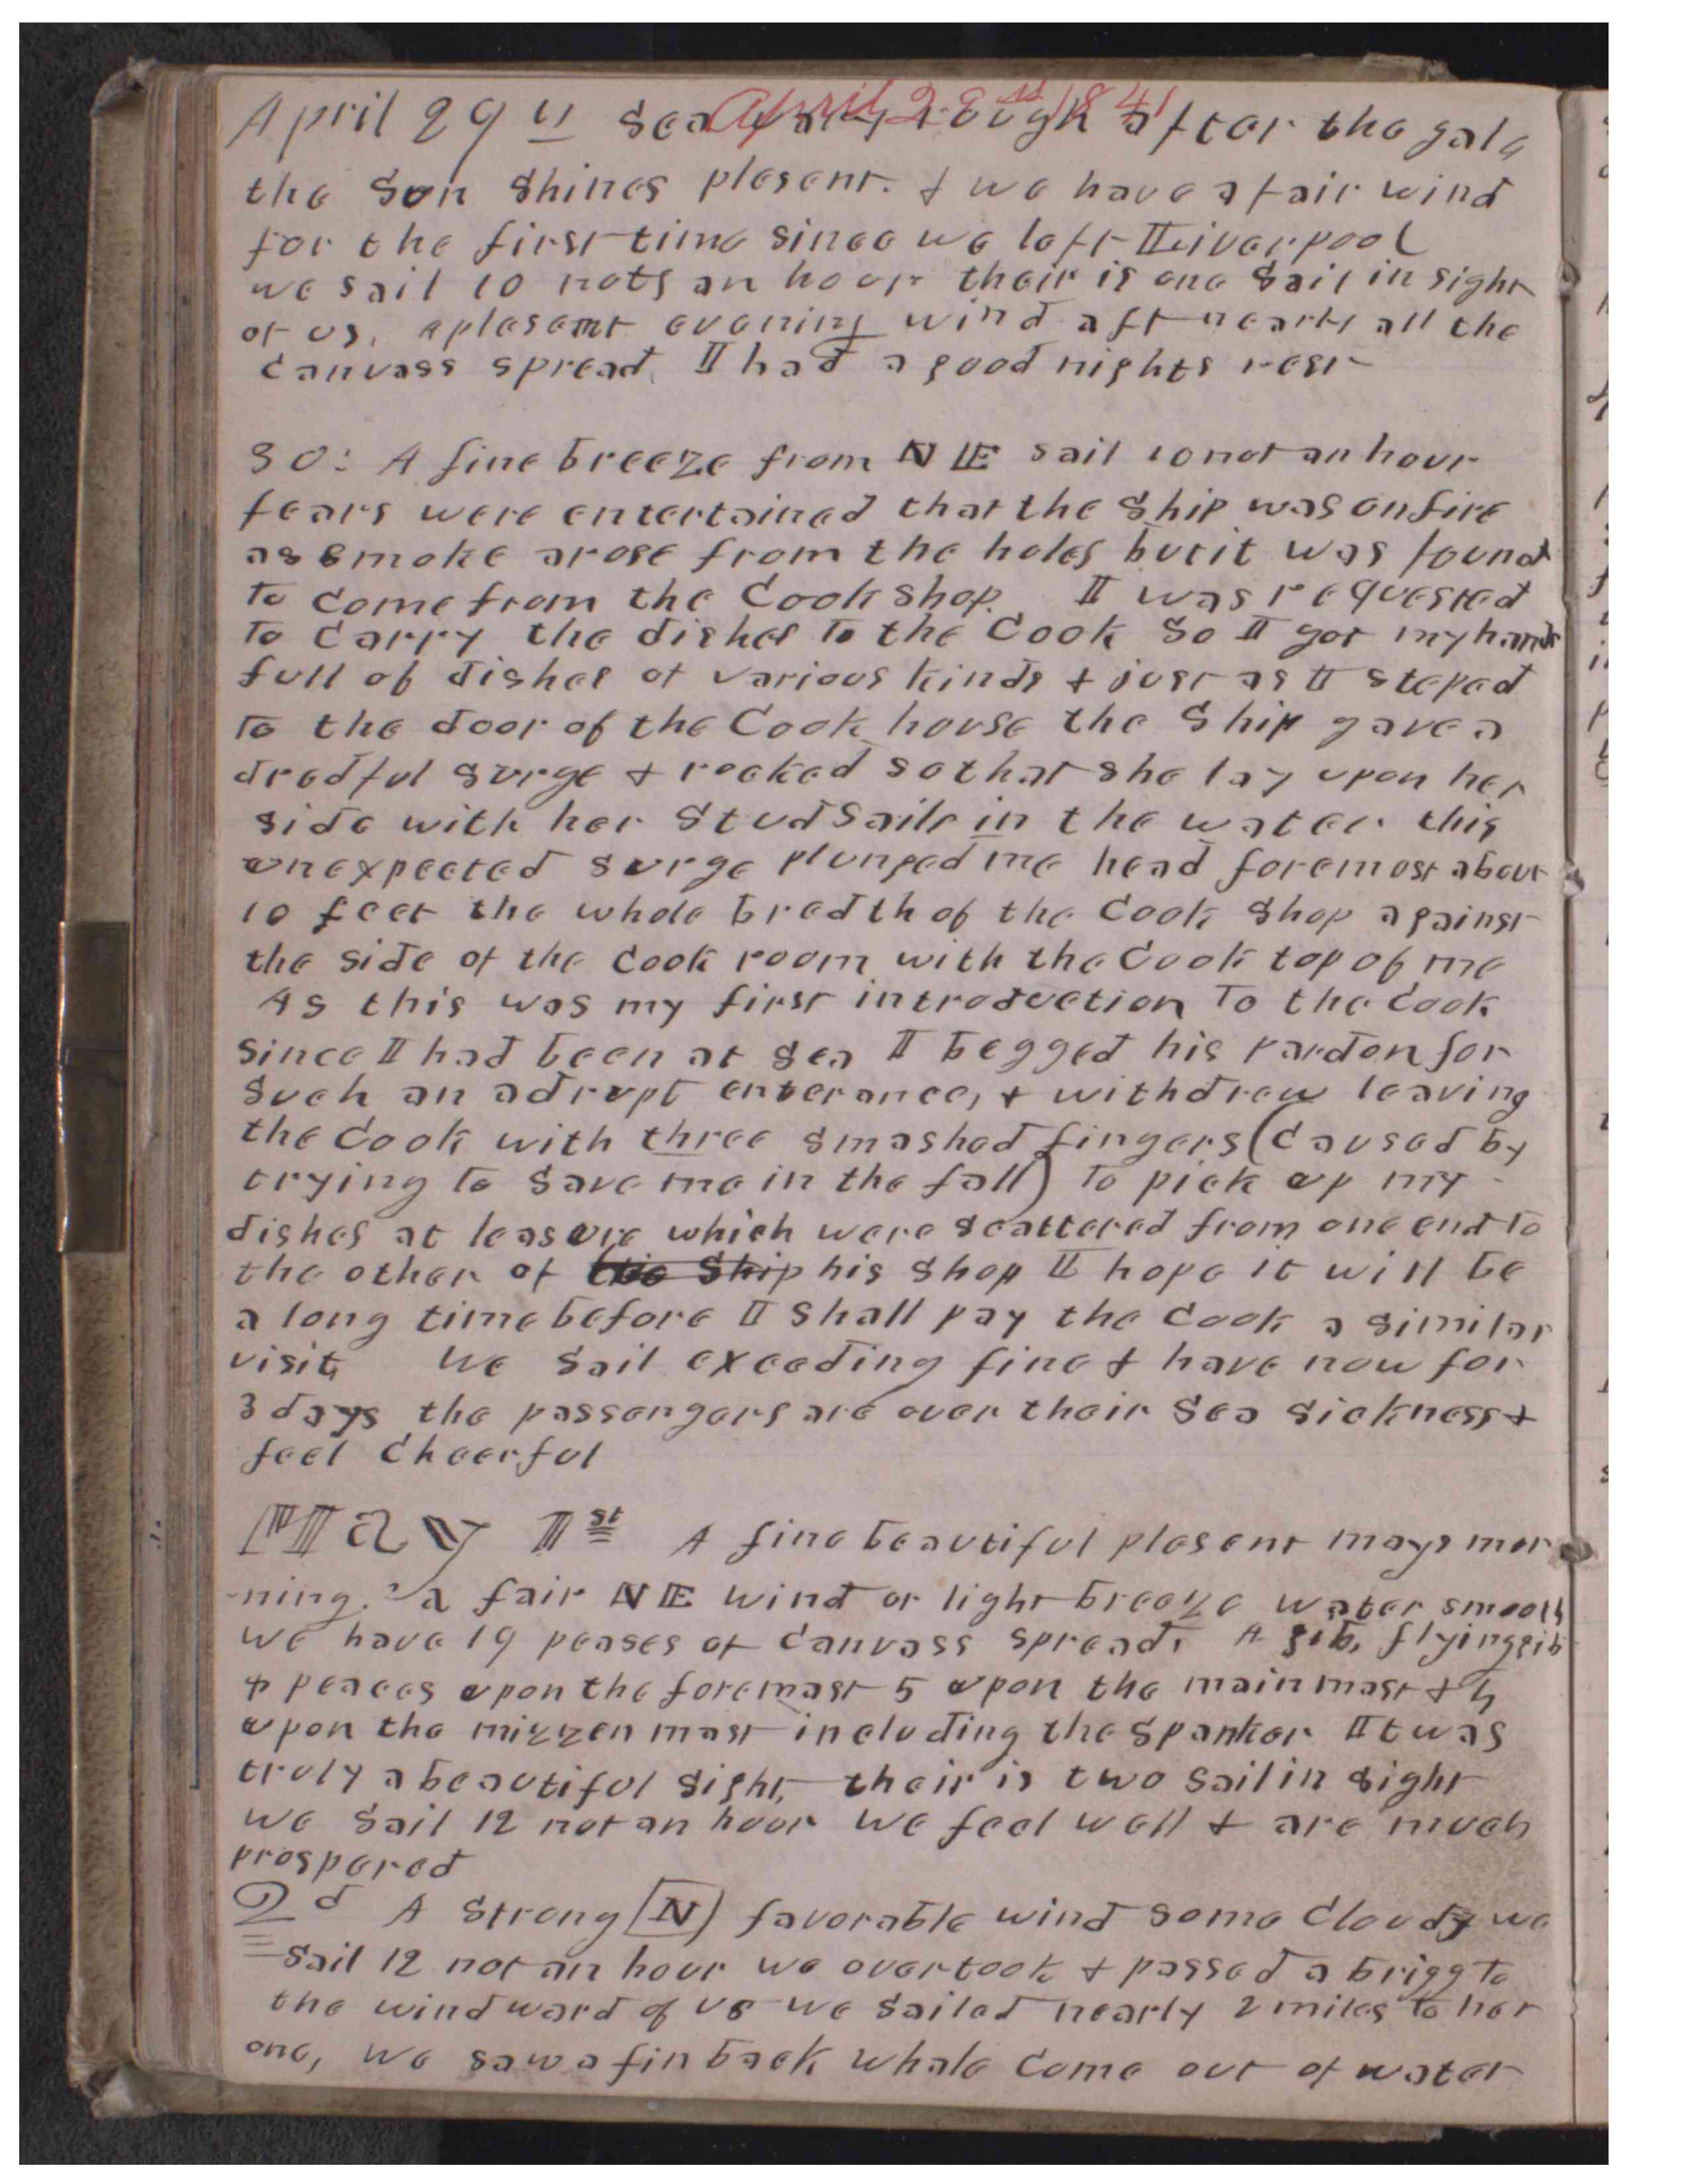 April 29th Sea vary rough after the gale
April 29th 1841
the Son Shines plesent. & we have a fair wind
for the first time since we left Liverpool
we sail 10 nots an hour their is one Sail in sight
of us. a plesant evening wind aft nearly all the
canvass spread. I had a good nights rest
30: A fine breeze from NE sail 10 not an hour
fears were entertained that the Ship was on fire
as smoke arose from the holes but it was found
to come from the Cook shop. I was requested
to carry the dishes to the Cook So I got my hands
full of dishes of various kinds & just as I steped
to the door of the Cook house the Ship gave a
dredful surge & rocked so that she lay upon her
side with her Studsails in the water this
unexpected surge plunged me head foremost about
10 feet the whole bredth of the Cook Shop against
the side of the Cook room with the Cook top of me
As this was my first introduction To the Cook
since I had been at sea I begged his pardon for
such an adrupt enterance, & withdrew leaving
the Cook with three smashed fingers (caused by
trying to save me in the fall) to pick up my
dishes at leasure which were scattered from one end to
the other of the Ship his shop I hope it will be
a long time before I shall pay the Cook a similar
visit We Sail exceeding fine & have now for
3 days the passengers are over their Sea sickness &
feel cheerful
May 1st A fine beautiful plesent mays mor
-ning. a fair NE wind or light breeze water smooth
we have 19 peases of canvass spread, A gib, flying gib
& peaces upon the foremast 5 upon the main mast & 5
upon the mizzen mast including the Spanker It was
truly a beautiful sight, their is two sail in sight
we sail 12 not an hour we feel well & are much
prospered
2d A Strong (N) favorable wind some cloudy we
sail 12 not an hour we overtook & passed a brigg to
the windward of us we sailed nearly 2 miles to her
one, we saw a fin back whale come out of water